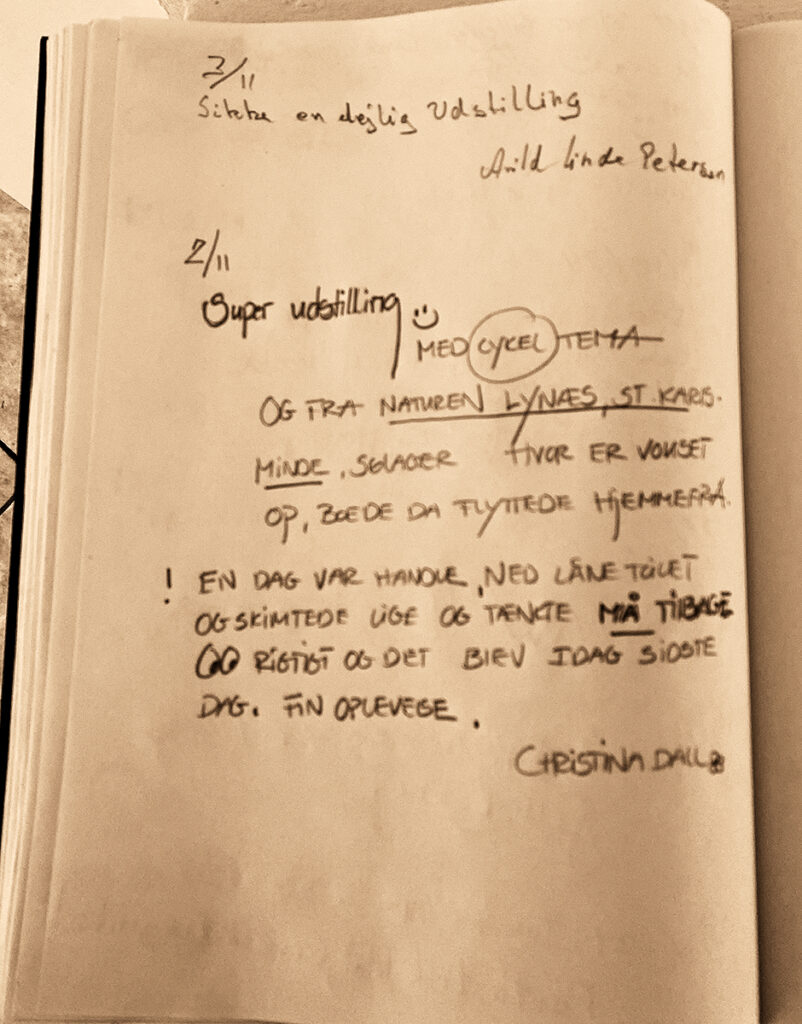 3/11
Sikke en dejlig Udstilling
Arild Linde Petersen
2/11
Super udstilling
MED CYKEL TEMA
OG FRA NATUREN LYNÆS, ST. KARLS.
MINDE, SØLAGER HVOR ER VOKSET
OP, BOEDE DA FLYTTEDE HJEMMEFRA.
! EN DAG VAR HANDLE, NED LÅNE TOILET
OG SKIMTEDE LIGE OG TÆNKTE MÅ TILBAGE
RIGTIGT OG DET BLEV IDAG SIDSTE
DAG. FIN OPLEVELSE.
CHRISTINA DALL